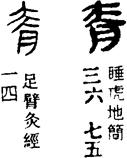 睡虎地簡
三六 七五
足臂灸經
一四